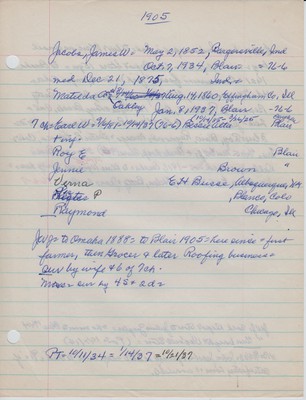 1905
Jacobs, James W. = May 2, 1852, Bargersville, Ind
Oct. 7, 1934, Blair = 76-6
md Dec 21, 1875, Ind.
Matilda Aug. 14, 1860, Effingham Co, Ill
Oakley Jan. 9, 1937, Blair = 76-6
7 ch = Earl W =
Roy E Blair
Jennie Brown "
Verna E.H. Busse, Albuquerque, NM
P Blanco, Colo
Raymond Chicago, Ill
JWJ = to Omaha 1888 = to Blair 1905 = here since = first
farmer, then Grocer & later Roofing business =
Sur by wife & 6 of 7 ch.
Moser sur by 4 s + 2 ds
PT = 10/11/34 = 1/14/37 = 10/21/37